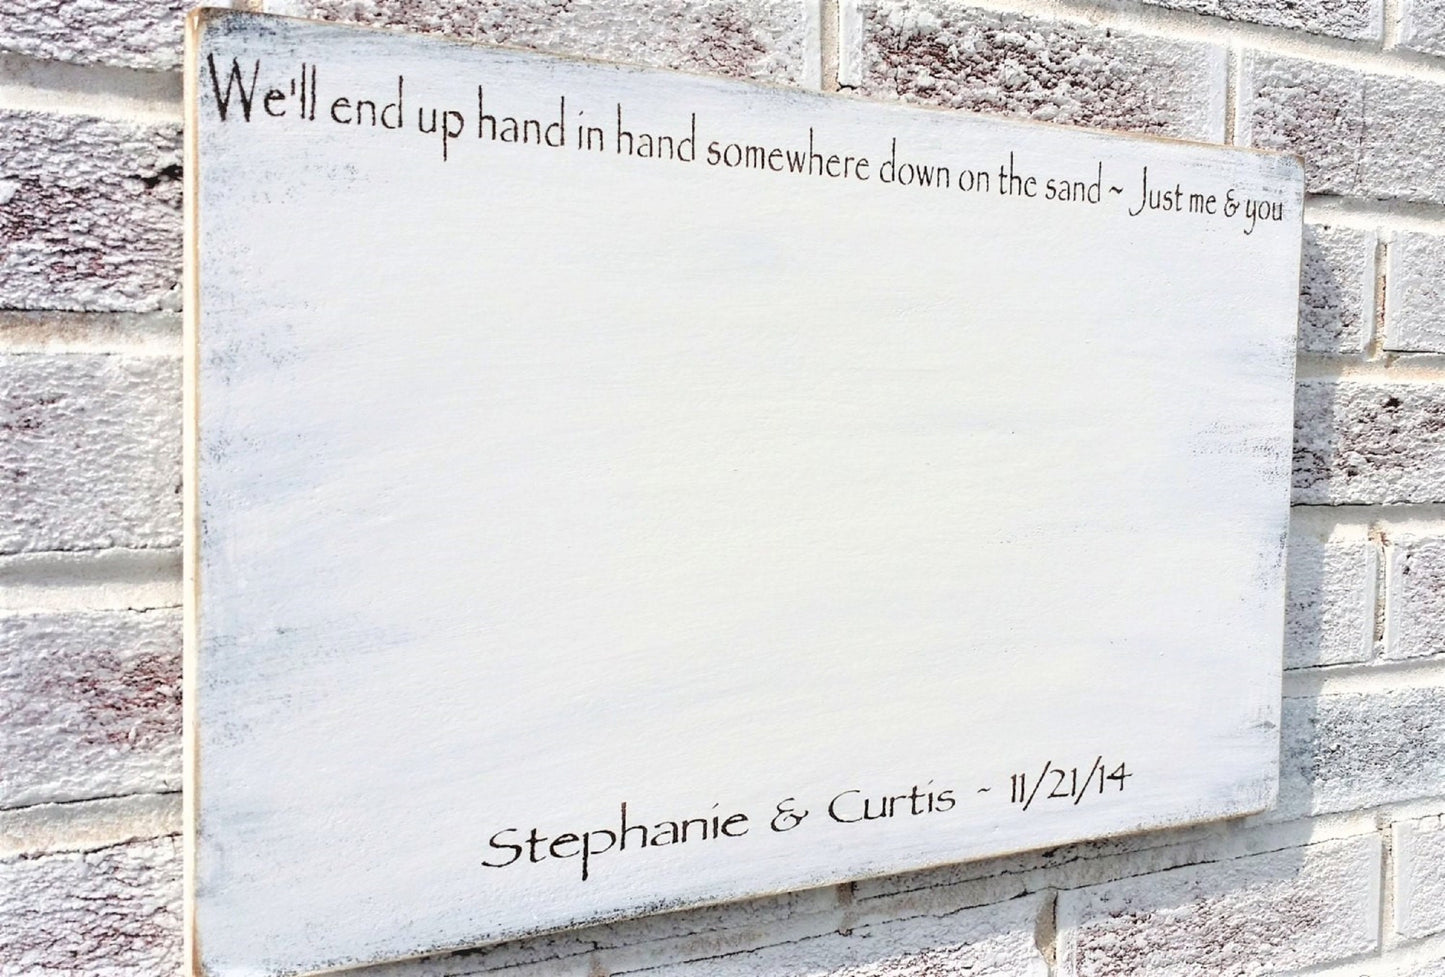 We'll end up hand in hand somewhere down on the sand ~ Just me & you
Stephanie & Curtis ~ 11/21/14